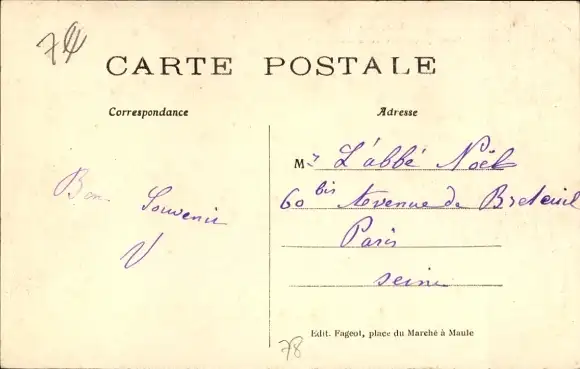 74
CARTE POSTALE
Correspondance
Adresse
Bon Souvenir
V
Mr L'abbé Noël
60 bis Avenue de Breteuil
Paris
Seine
Edit. Fageot, place du Marché à Maule
78